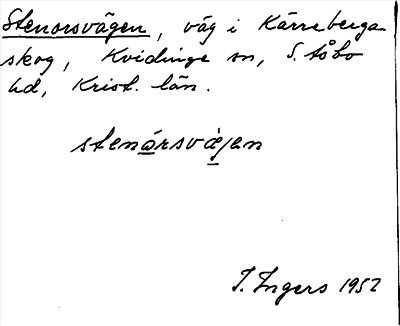 Stenorsvägen, väg i Kärreberga
skog, Kvidinge sn, S. Åsbo
hd, Krist. län.
stenårsvägen
I. Ingers 1952